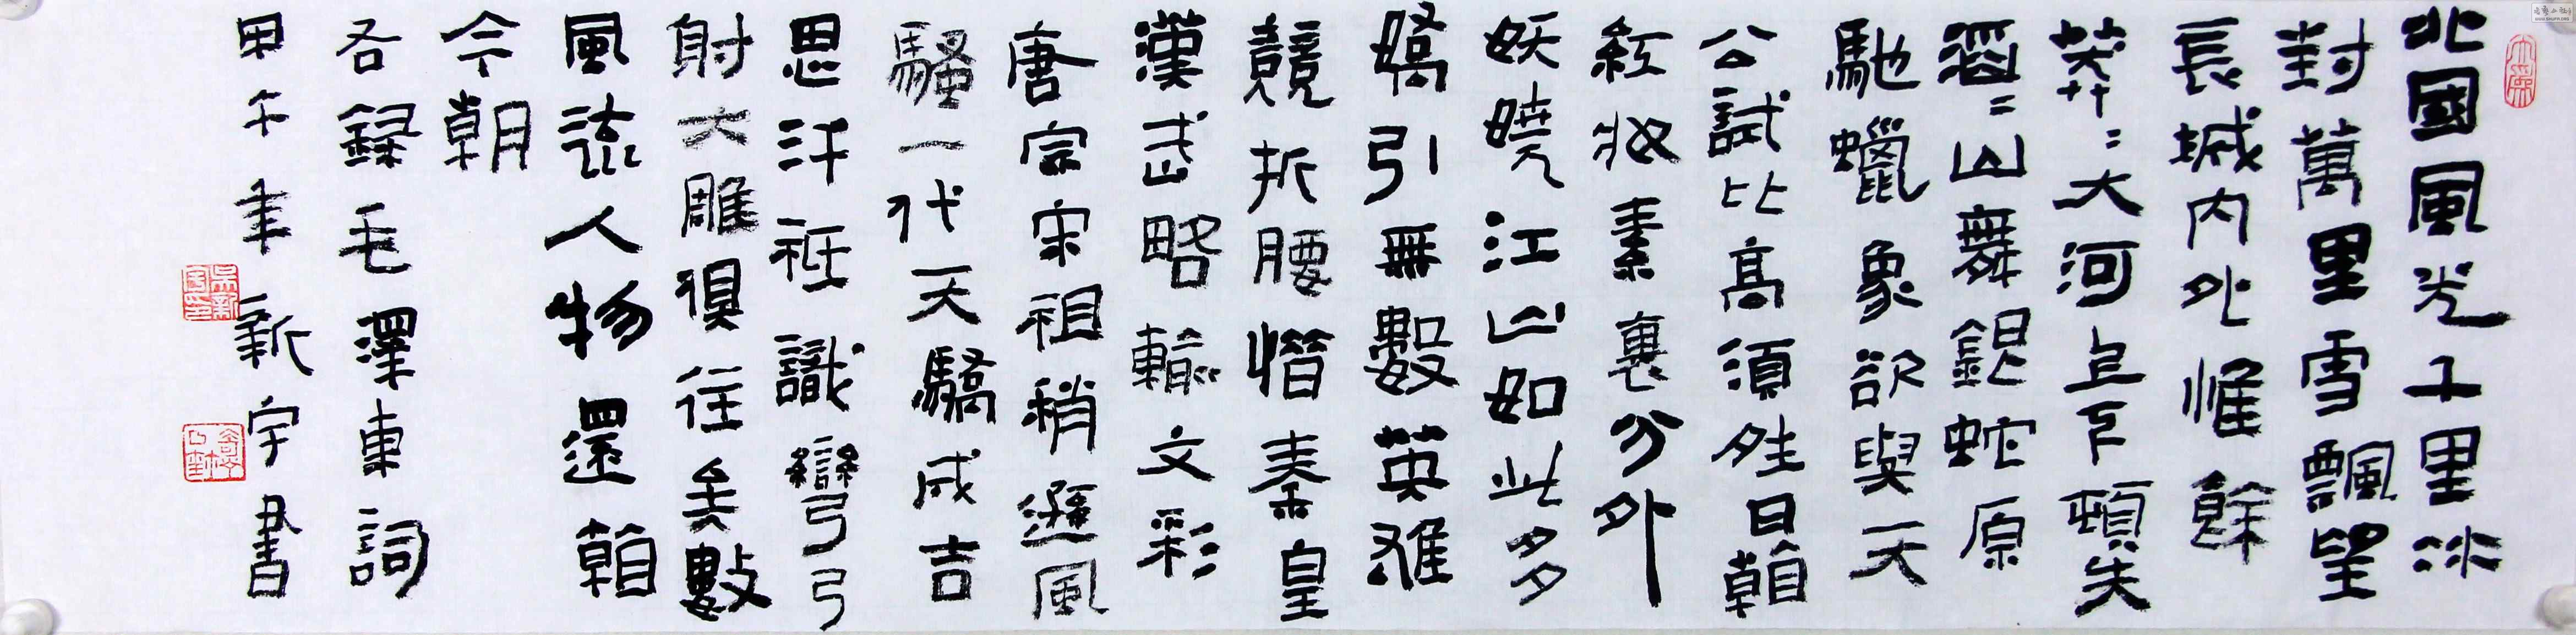 北國風光千里冰
封萬里雪飄望
長城内外惟餘
莽〻大河上下頓失
滔〻山舞銀蛇原
馳蠟象欲與天
公試比高須晴日看
紅妝素裹分外
妖嬈江山如此多
嬌引無數英雄
競折腰惜秦皇
漢武略輸文彩
唐宗宋祖稍遜風
騷一代天驕成吉
思汗衹識彎弓
射大雕俱往矣數
風流人物還看
今朝
右錄毛澤東詞
甲午年新宇書